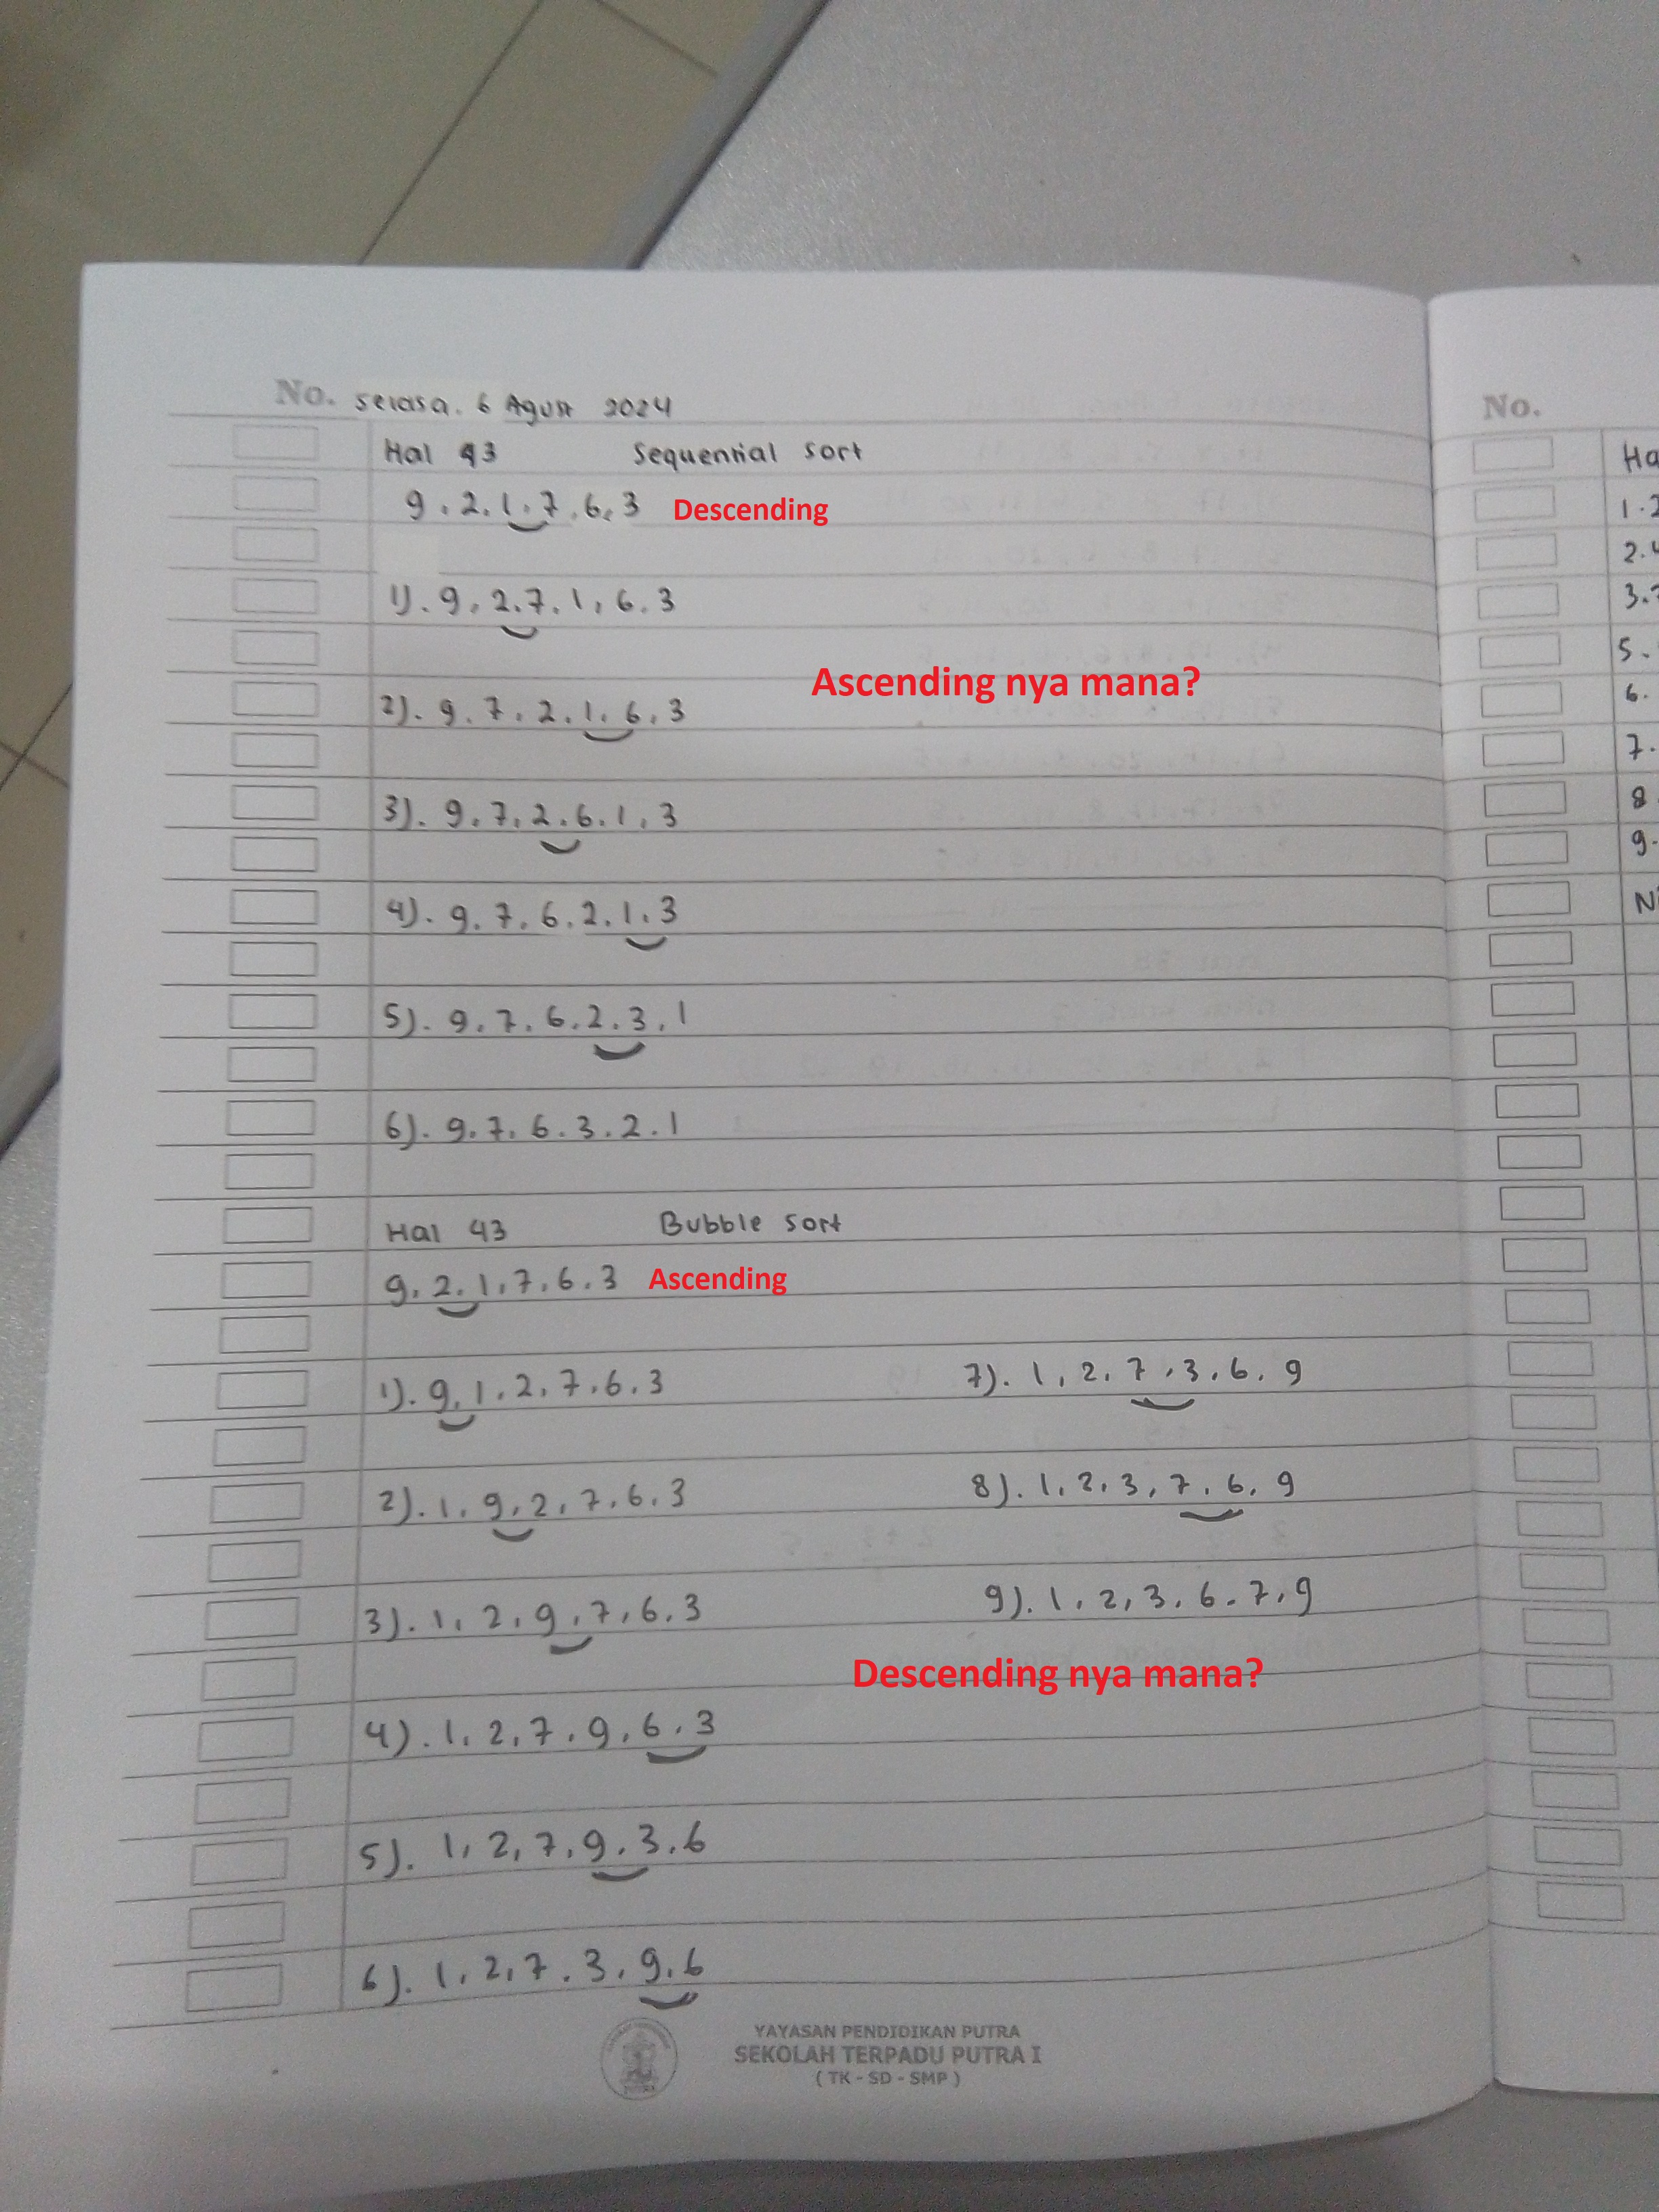 No. Selasa. 6 Agust 2024
Hal 43 Sequential sort
9. 2. 1. 7. 6. 3 Descending
1). 9. 2. 7. 1, 6. 3
Ascending nya mana?
2). 9. 7. 2. 1. 6. 3
3). 9. 7. 2. 6. 1. 3
4). 9. 7. 6. 2. 1. 3
5). 9. 7. 6. 2. 3. 1
6). 9. 7. 6. 3. 2. 1
Hal 43 Bubble sort
9. 2. 1, 7. 6. 3 Ascending
1). 9. 1. 2, 7. 6. 3
2). 1. 9. 2, 7, 6, 3
3). 1. 2, 9, 7, 6. 3
4). 1. 2, 7. 9, 6. 3
5). 1, 2, 7. 9. 3. 6
6). 1. 2, 7. 3. 9. 6
7). 1, 2. 7, 3. 6. 9
8). 1. 2, 3, 7. 6. 9
9). 1. 2, 3. 6. 7, 9
Descending nya mana?
YAYASAN PENDIDIKAN PUTRA
SEKOLAH TERPADU PUTRA I
( TK - SD - SMP )
No.
Ha
1.2
2.4
3.7
5.
6.
7.
8
9.